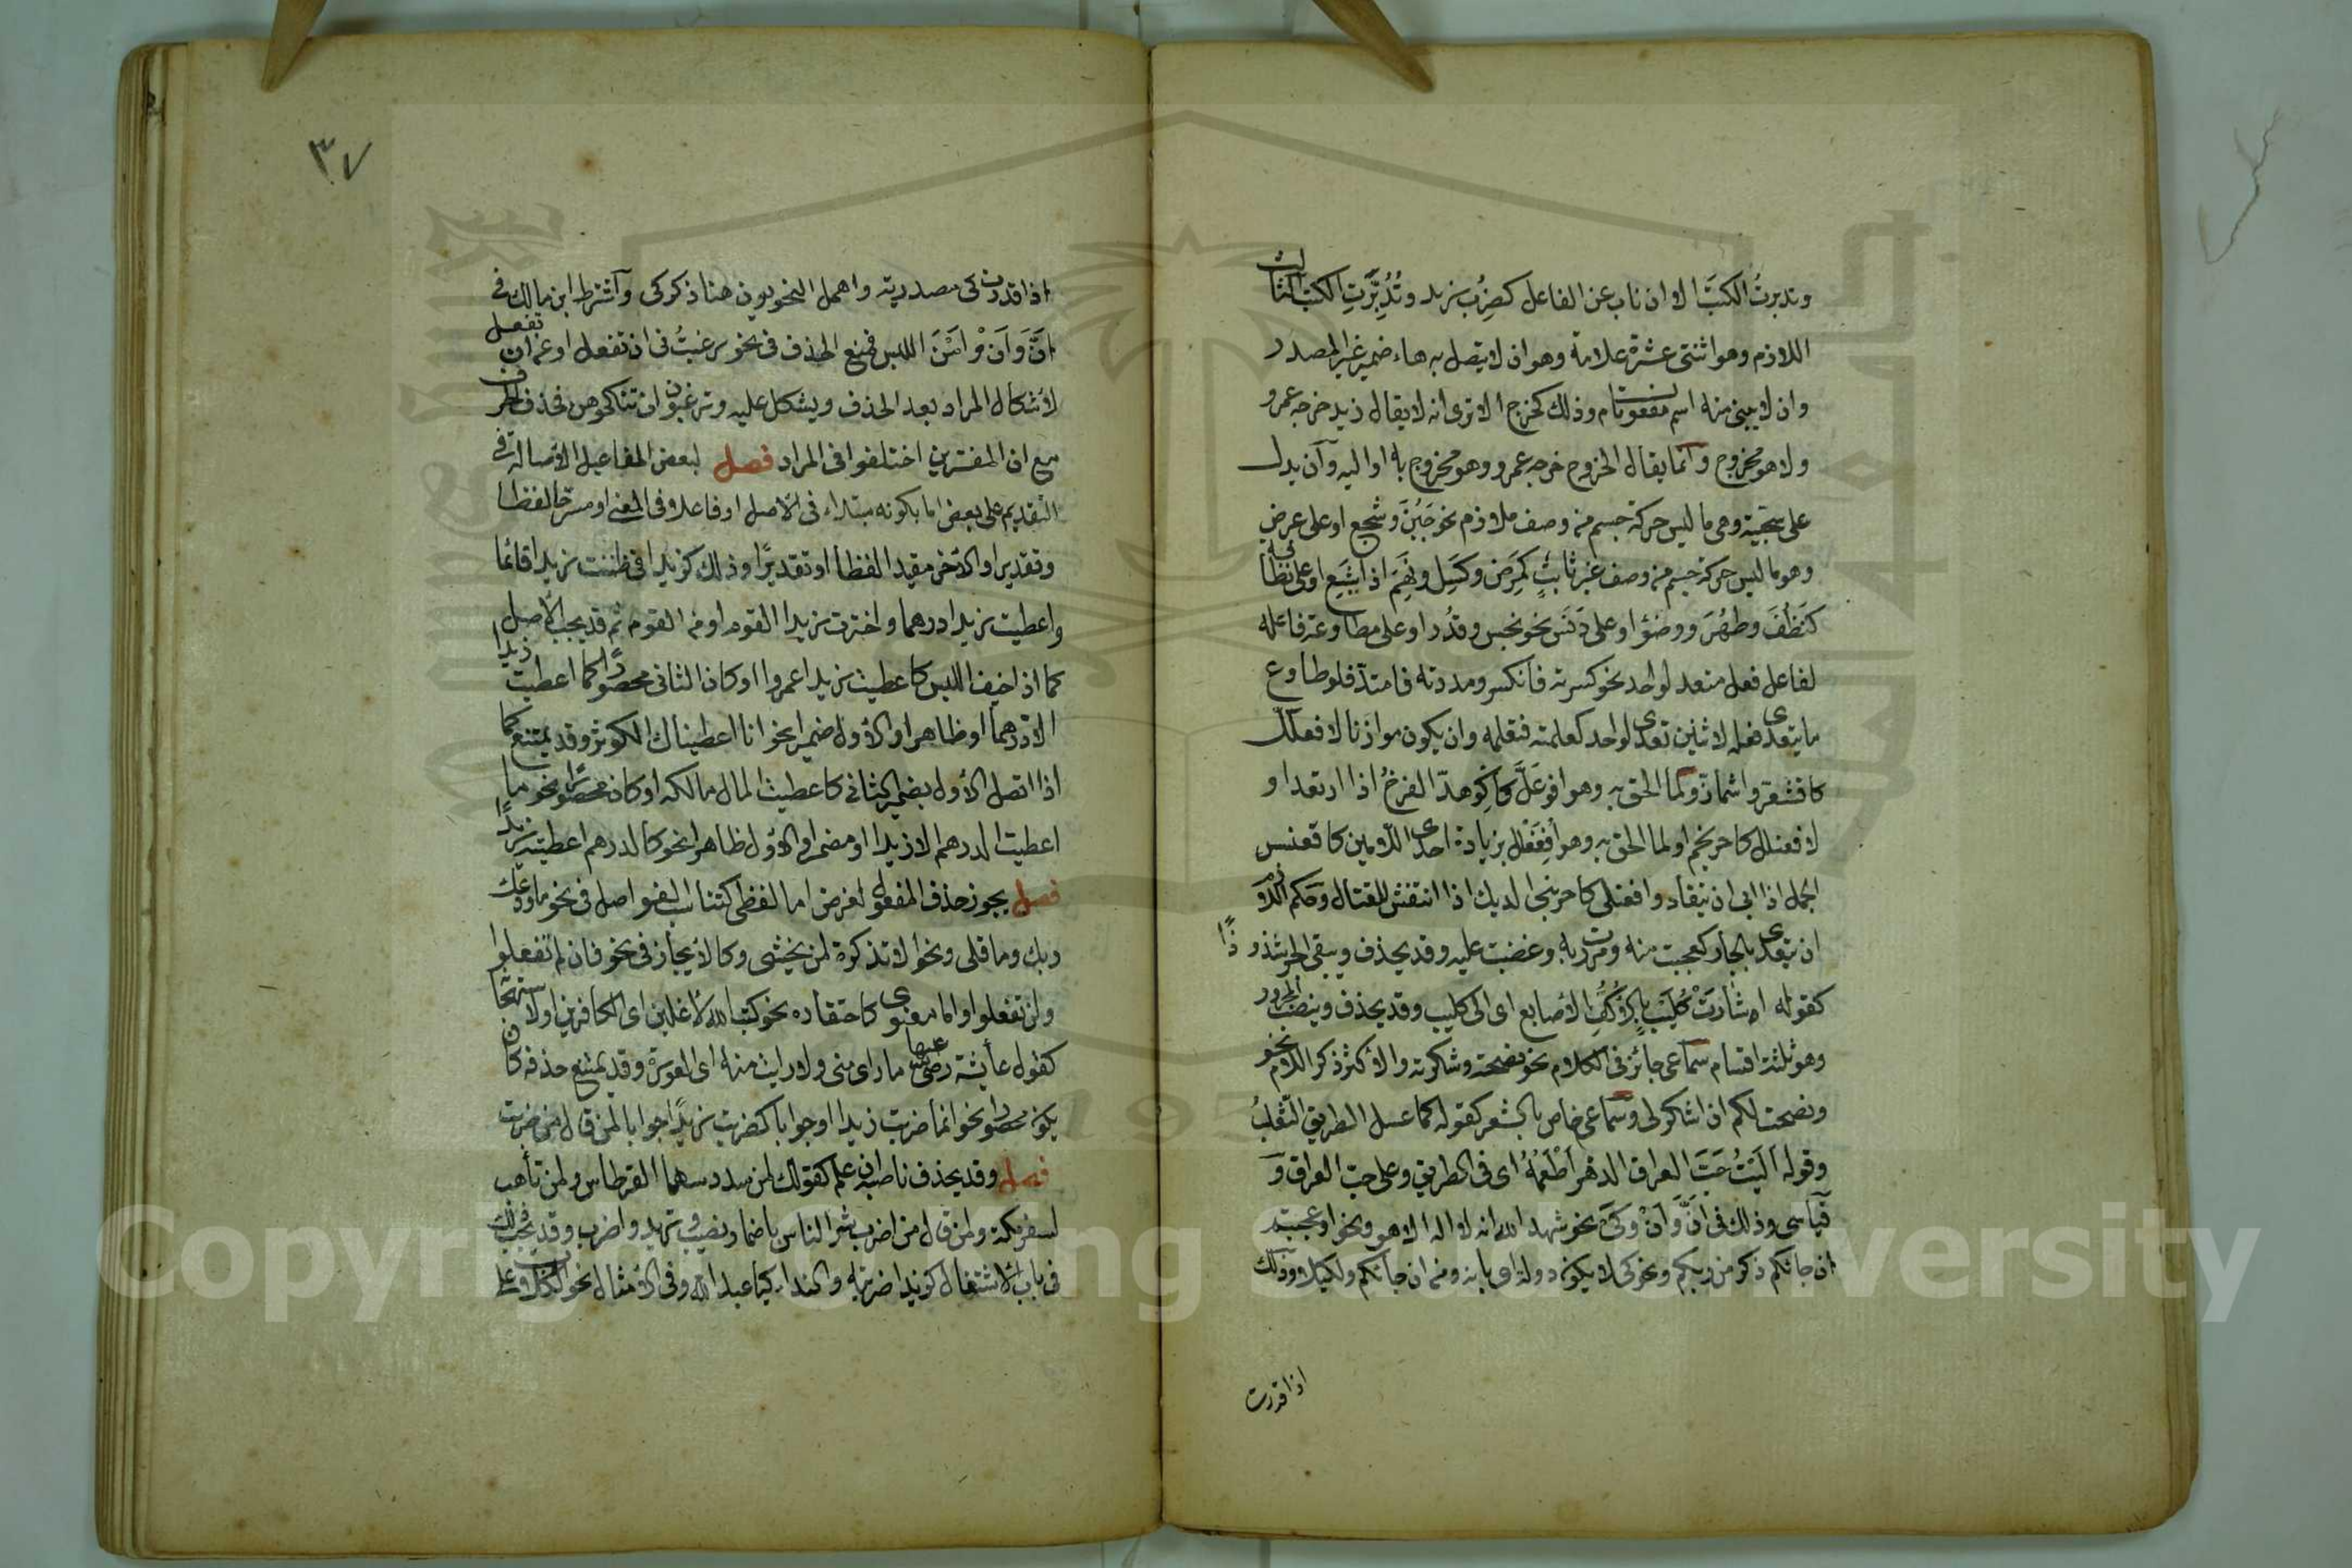 وتدبرتُ الكتبَ الا ان ناب عن الفاعل كضُرِب زيد وتُدُبِّرَتِ الكتب الثالث
اللازم وهو اثنتى عشرة علامة وهو ان لا يتصل به هاء ضمير غير المصدر
وان لا يبنى منه اسم مفعول تام وذلك كخرج الا ترى انه لا يقال زيد خرجه عمرو
ولا هو مخروج وانما يقال الخروج خرجه عمرو وهو مخروج به او اليه وان يدل
على سجية وهى ما ليس حركة جسم من وصف ملازم نحو جَبُنَ وشجع او على عرض
وهو ما ليس حركة جسم من وصف غير ثابت كمرض وكسل ونَهِمَ اذا شبع او على نظافه
كنَظُفَ وطهُرَ ووضؤ او على دَنَس نحو نجس وقذُر او على مطاوعة فاعله
لفاعل فعل متعد لواحد نحو كسرته فانكسر ومددته فامتد فلو طاوع
ما يتعدى فعله لاثنين تعدى لواحد كعلمته فتعلمه وان يكون موازنا لافعلل
كاقشعر واشمأز ولما الحق به وهو افوعلّ كاكوهدّ الفرخُ اذا ارتعد او
لافعنلل كاحرنجم او لما الحق به وهو افعنلل بزيادة احدى اللامين كاقعنسس
الجمل اذا ابى ان ينقاد وافعنلى كاحرنبى الديك اذا انتفش للقتال وحكم اللازم
ان يتعدى بالجار كعجبت منه ومررت به وغضبت عليه وقد يحذف ويبقى الجر شذوذًا
كقوله اشارت كليب بالاكف الاصابع اى الى كليب وقد يحذف وينصب المجرور
وهو ثلثة اقسام سماعى جائز فى الكلام نحو نصحته وشكرته والاكثر ذكر اللام نحو
ونصحت لكم ان اشكر لى وسماعى خاص بالشعر كقوله كما عسل الطريق الثعلبُ
وقوله آليتُ حَبَّ العراق الدهر اطعمُهُ اى فى الطريق وعلى حب العراق و
قياسى وذلك فى انّ وان وكى نحو شهد الله انه لا اله الا هو ونحو اوعجبتم
ان جائكم ذكر من ربكم ونحو كى لا يكون دولة اى بانه ومن ان جائكم ولكيلا وذلك
اذا قدرت
٣٧
اذا قدرت كى مصدرية واهمل النحويون هنا ذكر كى واشترط ابن مالك فى
انَّ وَان امْنَ اللبس فمنع الحذف فى نحو رغبتُ فى ان تفعل او عن ان تفعل
لاشكال المراد بعد الحذف ويشكل عليه وترغبون ان تنكحوهن فحذف الحرف
مع ان المفسرين اختلفوا فى المراد فصل لبعض المفاعيل الاصالة فى
التقديم على بعض اما بكونه مبتداء فى الاصل او فاعلا فى المعنى او مسرحا لفظا
وتقديرا والاخر مقيدا لفظا او تقديرًا وذلك كزيدا فى ظننت زيدا قائما
واعطيت زيدا درهما واخترت زيدا القوم او من القوم ثم قد يجب الاصل
كما اذا خيف اللبس كاعطيت زيدا عمروا او كان الثانى محصورًا كما اعطيت زيدا
الا درهما او ظاهرا والاول ضميرا نحو انا اعطيناك الكوثر وقد يمتنع كما
اذا اتصل الاول بضمير الثانى كاعطيت المال مالكه او كان محصورًا نحو ما
اعطيت الدرهم الا زيدا او مضمرا والاول ظاهرا نحو كالدرهم اعطيته زيدًا
فصل يجوز حذف المفعول لغرض اما لفظى كتناسب الفواصل فى نحو ما ودعك
ربك وما قلى ونحو الا تذكرة لمن يخشى وكالايجاز فى نحو فان لم تفعلوا
ولن تفعلوا واما معنوى كاحتقاره نحو كتب الله لاغلبن اى الكافرين او لاستهجان
كقول عائشة رضى الله عنها ما راى منى ولا رايت منه اى العورة وقد يمتنع حذفه كان
يكون محصورا نحو انما ضربت زيدا او جوابا كضربت زيدًا جوابا لمن قال من ضربت
فصل وقد يحذف ناصبه ان علم كقولك لمن سدد سهما القرطاس ولمن تأهب
لسفر مكة ولمن قال من اضرب شر الناس باضمار تصيب وتريد واضرب وقد يجب ذلك
فى باب الاشتغال كزيدا ضربته والنداء كيا عبد الله وفى الامثال نحو الكلاب على